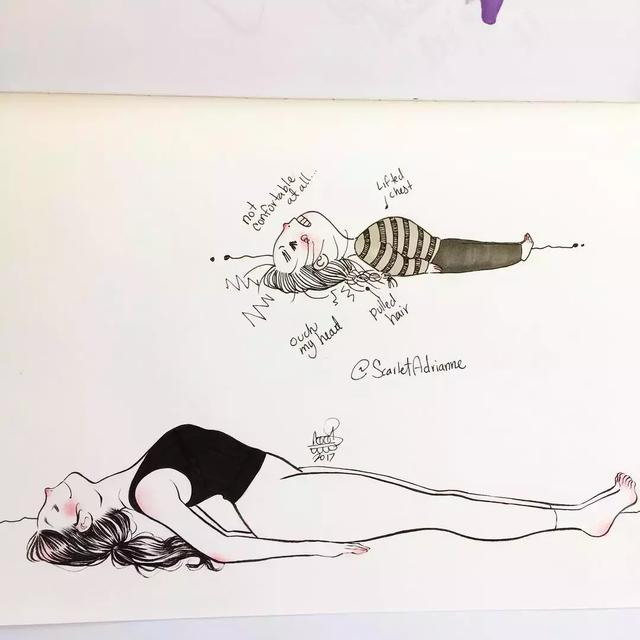 not
confortable
at all...
Lifted
chest
ouch
my head
pulled
hair
@ScarletAdrianne
2017